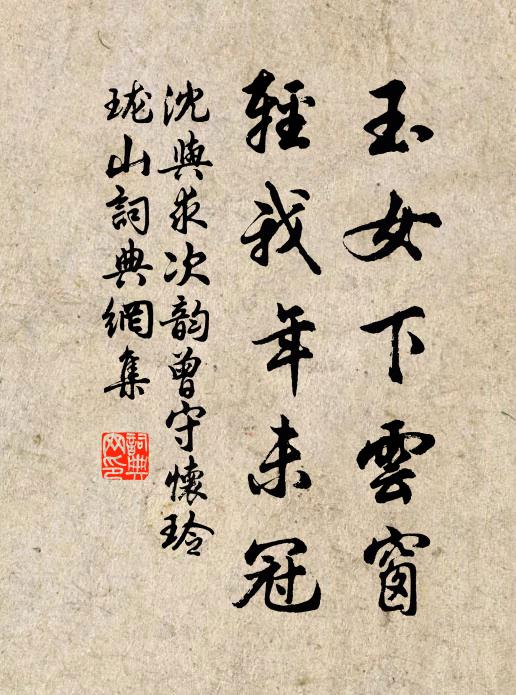 玉女下雲窗
輕我年未冠
沈與求次韵曾守懷玲
瓏山詞典網集
詞典網印